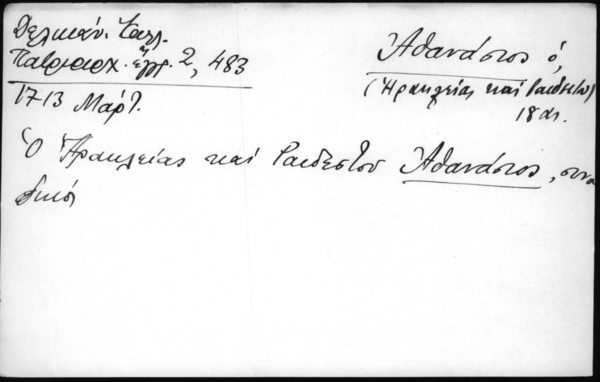 Δελικάν. Καλλ.
Πατριαρχ. ἔγγρ. 2, 483
1713 Μάρτ.
Ἀθανάσιος ὁ,
(Ἡρακλείας καί Ραιδεστοῦ)
18 αι.
Ὁ Ἡρακλείας καί Ραιδεστοῦ Ἀθανάσιος, συνο
δικός